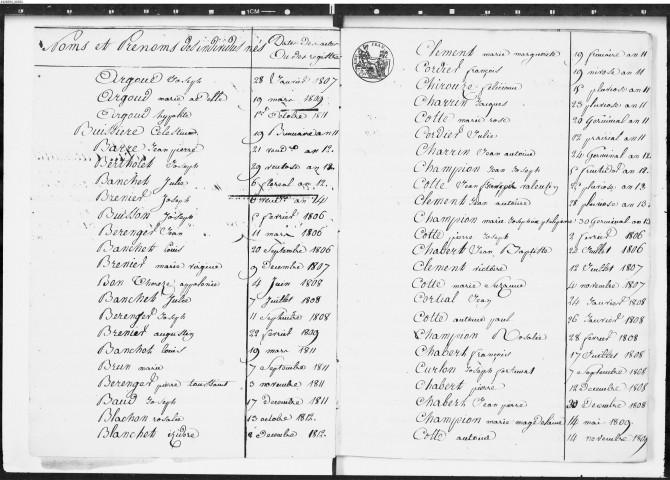 Noms et Prenoms des individus nés Date des actes
Ou des registres
Argoud Joseph 28 Janvier 1807
Argoud marie adelle 19 mars 1809
Argoud hypolite 1er Octobre 1811
Buissiere Celestine 19 Brumaire an 11
Barze Jean pierre 21 vend.re an 12
Bertholet Joseph 29 ventose an 12
Banchet Julie 6 floreal an 12
Brenier Joseph
Buisson Joseph février 1806
Berenger Jean 11 mars 1806
Banchet louis 20 Septembre 1806
Brenier marie 9 Decembre 1807
Bon appolonie 4 Juin 1808
Banchet Julie 7 Juillet 1808
Berenger Joseph 11 Septembre 1808
Brenier augustin 22 fevrier 1809
Banchet louis 19 mars 1811
Brun marie 7 Septembre 1811
Berenger pierre toussaint 3 novembre 1811
Baud Joseph 17 Decembre 1811
Blachon rosalie 13 octobre 1812
Blanchet izidore 2 Decembre 1812
Clement marie marguerite 19 frimaire an 11
Cordier françois 19 nivose an 11
Chirouze pluviose an 11
Charrin Jacques 23 pluviose an 11
Cotte marie rose 20 Germinal an 11
Cordier Julie 12 prairial an 11
Charrin Jean antoine 24 Germinal an 12
Champion Jean Joseph fructidor an 12
Cotte Jean Joseph valentin pluviose an 13
Clement Jean antoine 28 pluviose an 13
Champion marie Josephine 30 Germinal an 13
Cotte pierre Joseph 2 fevrier 1806
Chabert Jean Baptiste 22 Juillet 1806
Clement victoire 12 Juillet 1807
Cotte marie Suzanne 4 novembre 1807
Cortial Jean 24 Janvier 1808
Cotte antoine paul 26 Janvier 1808
Champion Rosalie 28 fevrier 1808
Chabert françois 17 Juillet 1808
Curlon Joseph fortunat 7 Septembre 1808
Chabert pierre 12 Decembre 1808
Chabert Jean pierre 30 Decembre 1808
Champion marie magdelaine 14 mai 1809
Cotte antoine 14 novembre 1809